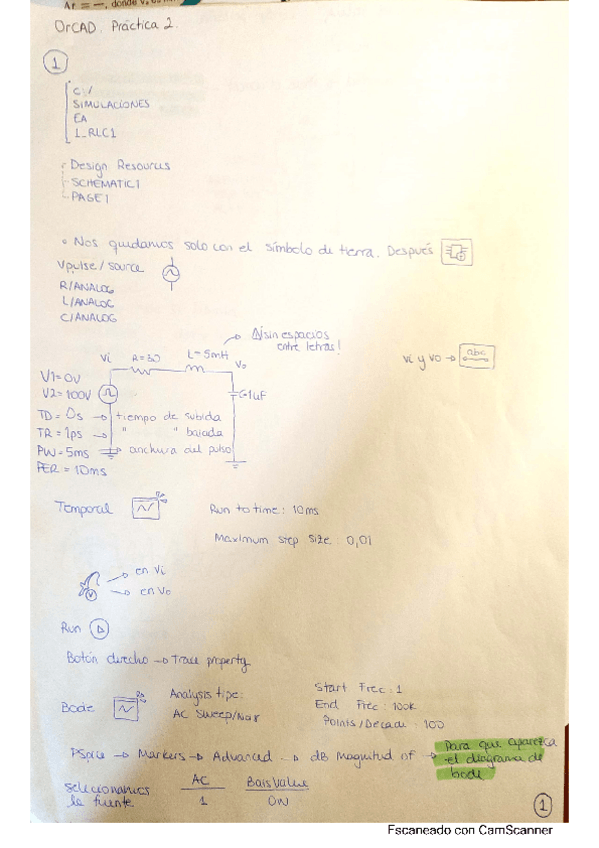 OrCAD. Práctica 2.
1
C:/
SIMULACIONES
EA
1_RLC1
Design Resources
SCHEMATIC1
PAGE1
• Nos quedamos solo con el símbolo de tierra. Después
Vpulse/source
R/ANALOG
L/ANALOG
C/ANALOG
¡sin espacios
entre letras!
Vi R=30 L=5mH Vo
Vi y Vo → abc
V1=0V
V2=100V
C=1uF
TD = 0s → tiempo de subida
TR = 1ps → " " bajada
PW=5ms → anchura del pulso
PER = 10ms
Temporal
Run to time: 10ms
Maximum step size: 0,01
V
→ en Vi
→ en Vo
Run
Botón derecho → Trace property
Bode
Analysis type:
AC Sweep/Noi
Start Frec: 1
End Frec: 100k
Points/Decade: 100
PSpice → Markers → Advanced → dB Magnitud of → Para que aparezca
el diagrama de
bode
seleccionamos
la fuente
AC BaisValue
1 0V
1
Escaneado con CamScanner